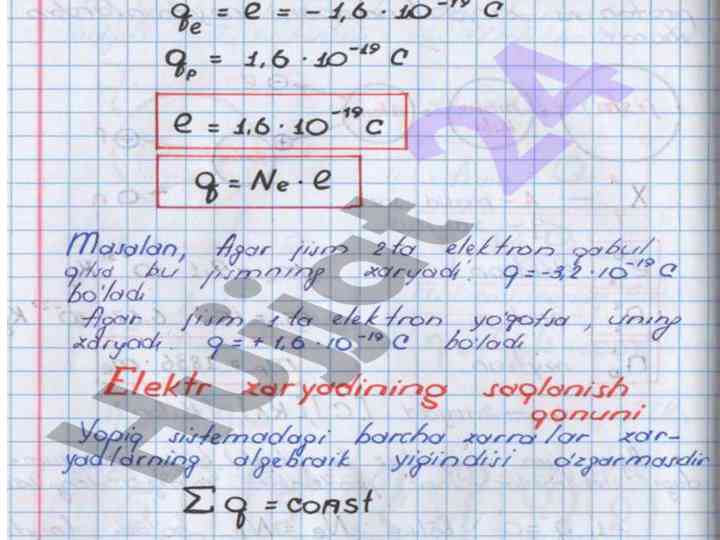 qe = e = - 1,6 · 10⁻¹⁹ C
qp = 1,6 · 10⁻¹⁹ C
e = 1,6 · 10⁻¹⁹ C
q = Ne · e
Masalan, Agar jism 2 ta elektron qabul
qilsa bu jismning zaryadi: q = -3,2 · 10⁻¹⁹ C
bo'ladi
Agar jism 1 ta elektron yo'qotsa, uning
zaryadi q = + 1,6 · 10⁻¹⁹ C bo'ladi
Elektr zaryadining saqlanish
qonuni
Yopiq sistemadagi barcha zarralar zar-
yadlarning algebraik yig'indisi o'zgarmasdir
Σ q = const
Hujjat 24